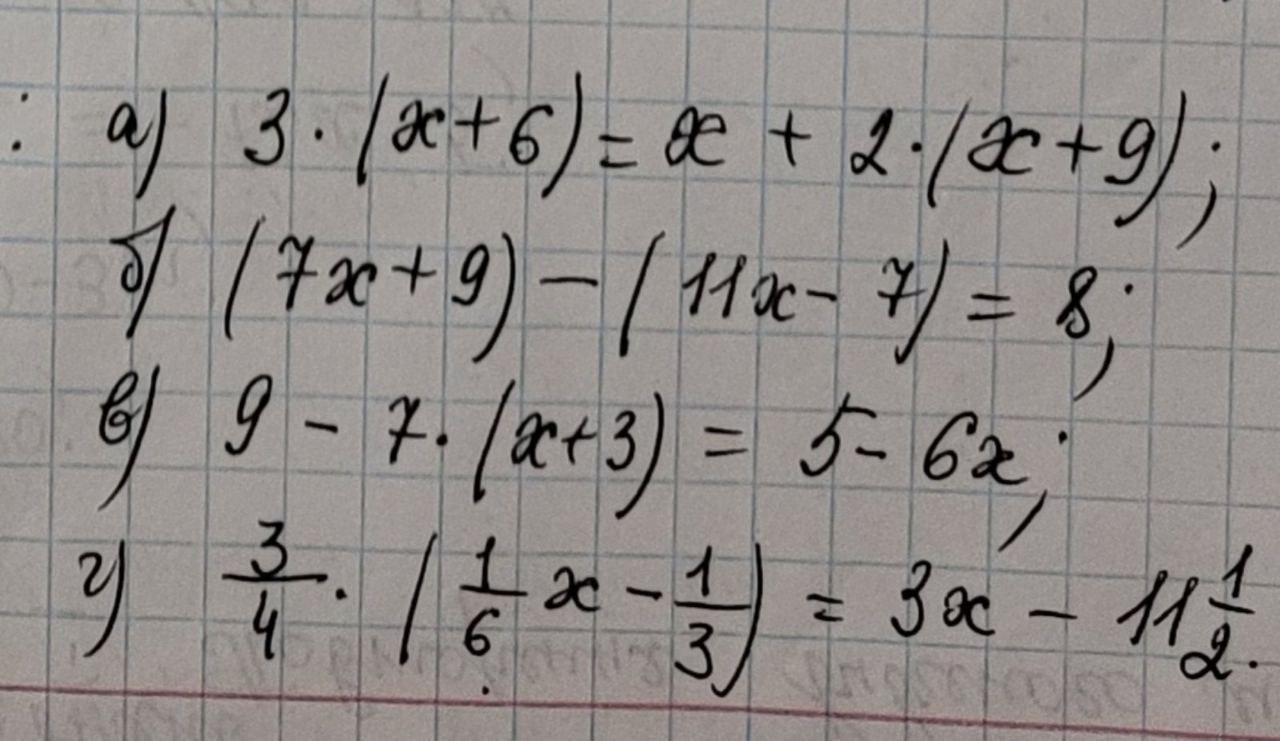 : а) 3 · (x + 6) = x + 2 · (x + 9);
б) (7x + 9) − (11x − 7) = 8;
в) 9 − 7 · (x + 3) = 5 − 6x;
г) 3/4 · (1/6 x − 1/3) = 3x − 11 1/2.